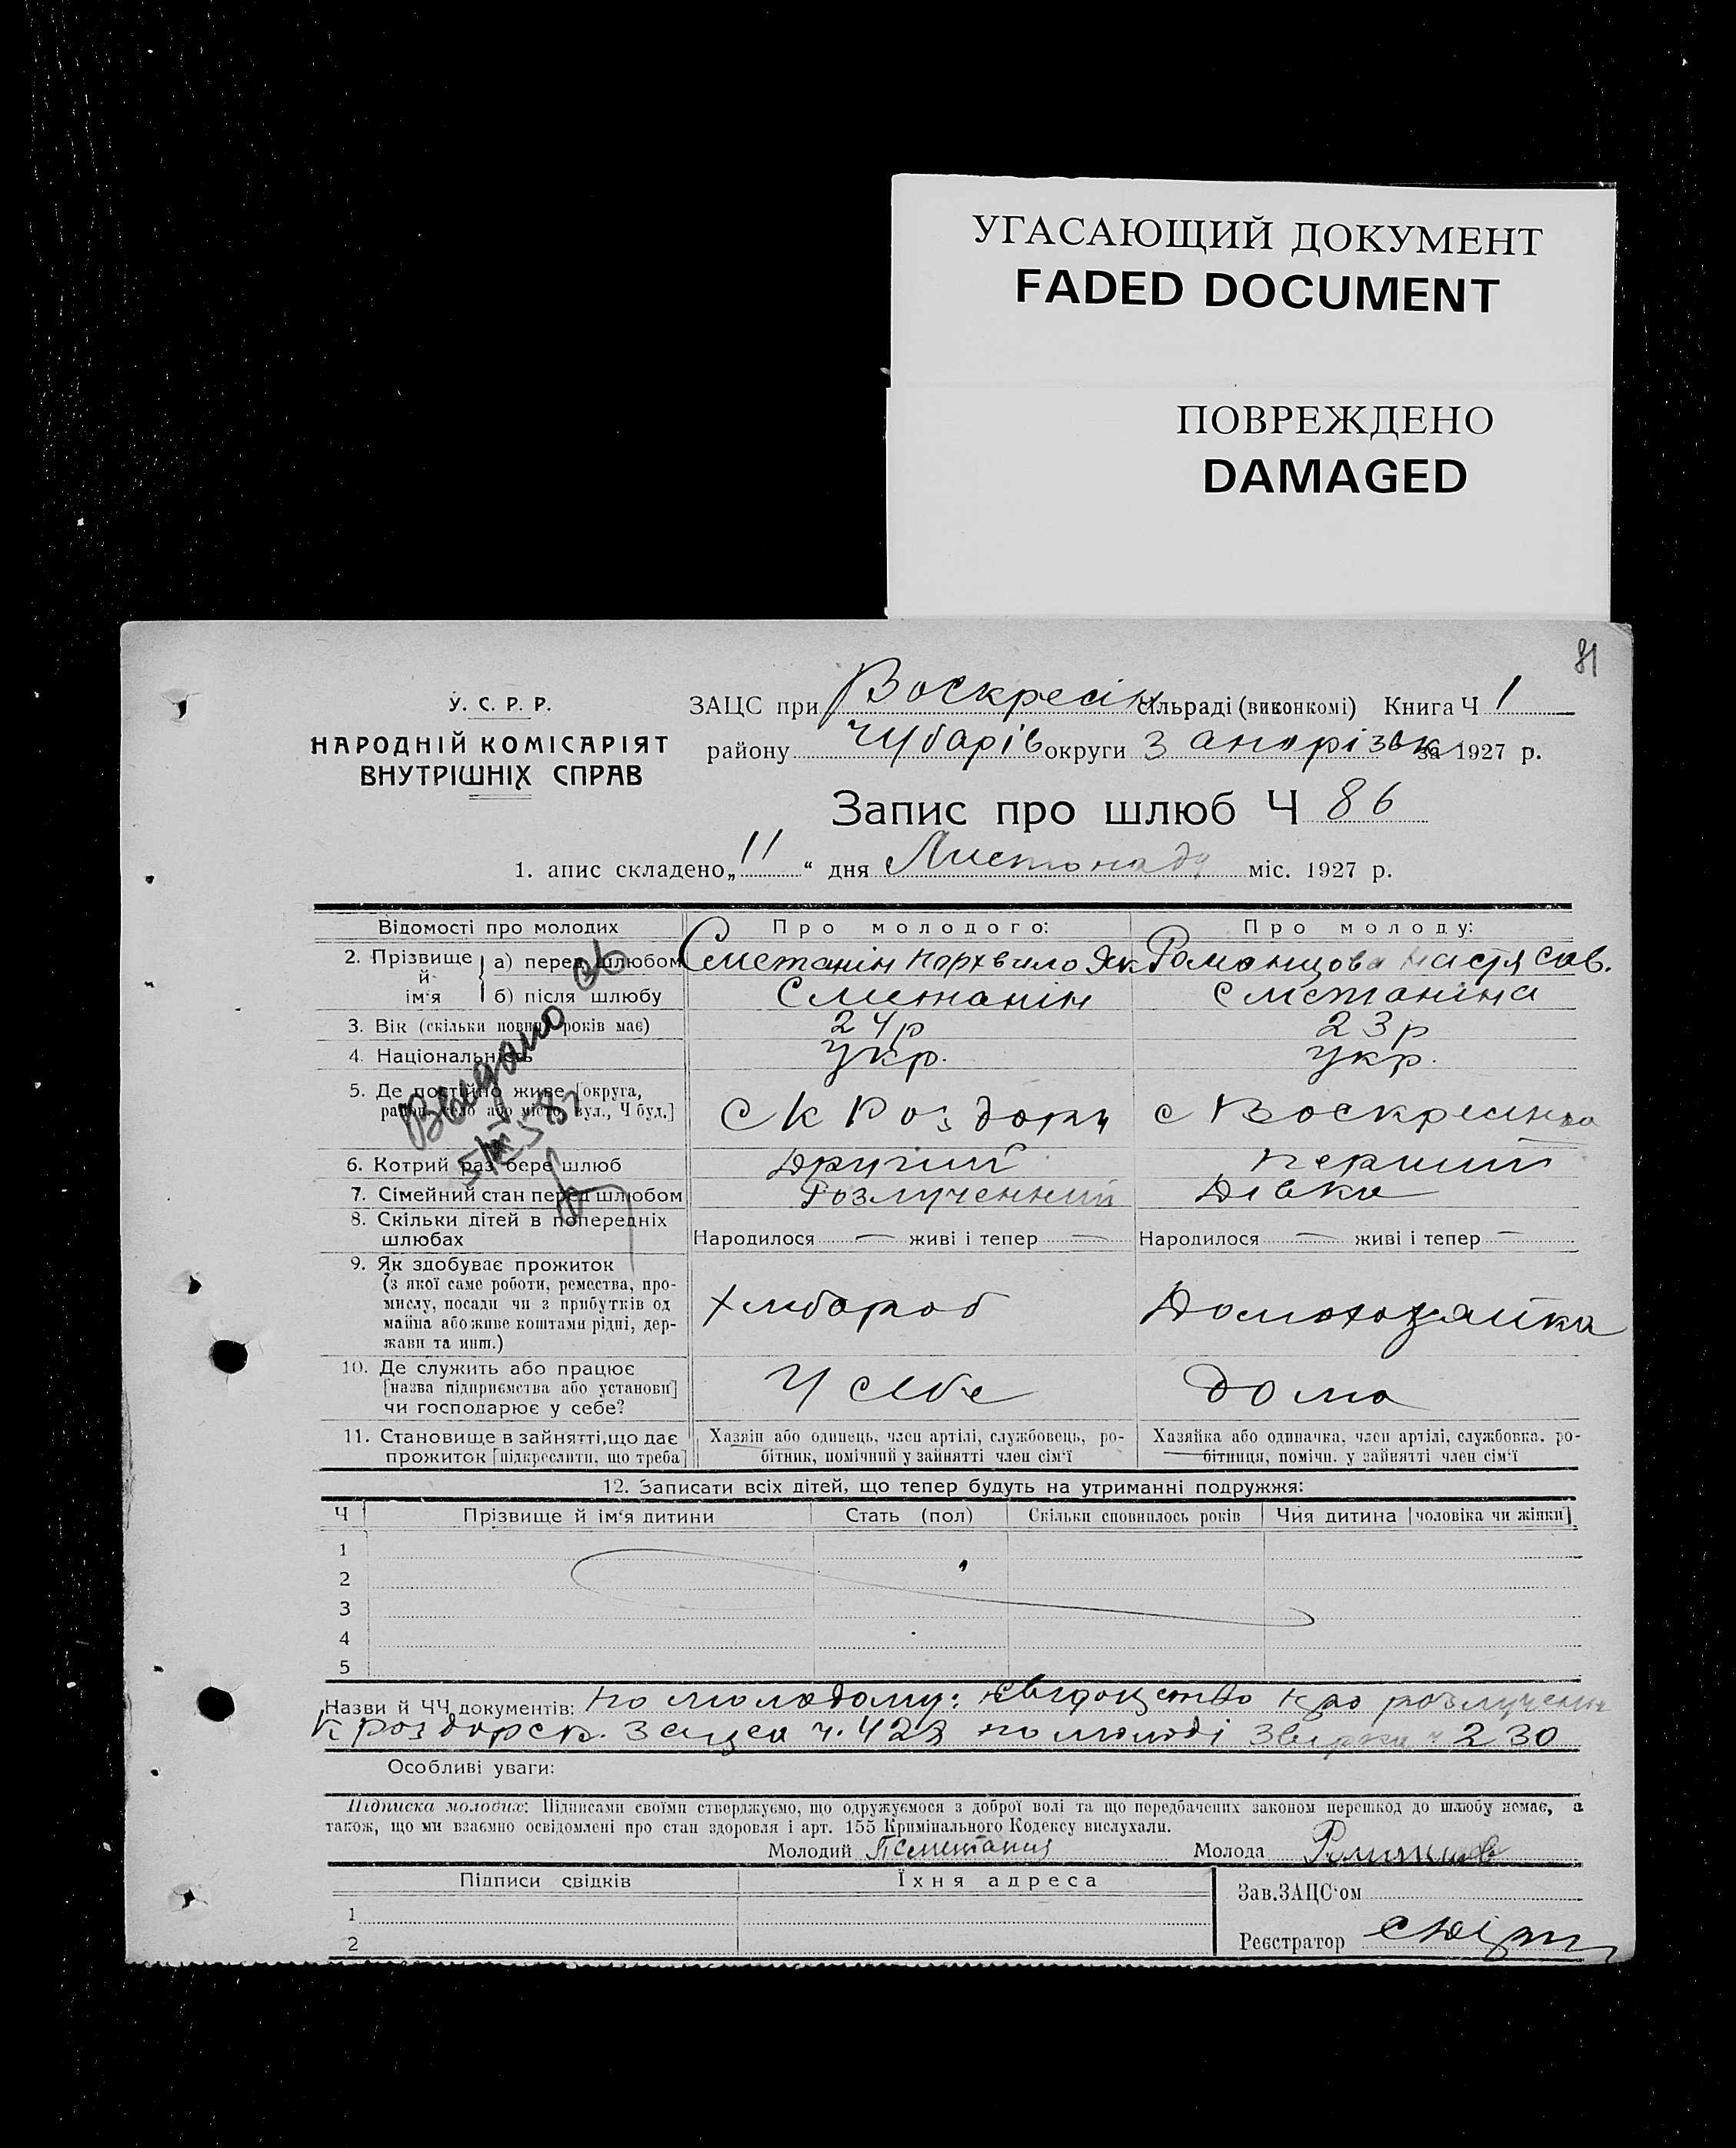 УГАСАЮЩИЙ ДОКУМЕНТ
FADED DOCUMENT
ПОВРЕЖДЕНО
DAMAGED
81
У. С. Р. Р.
НАРОДНІЙ КОМІСАРІЯТ
ВНУТРІШНІХ СПРАВ
ЗАЦС при Воскресін сільраді (виконкомі) Книга Ч 1
району Чубарів округи Запорізьк за 1927 р.
Запис про шлюб Ч 86
1. апис складено „ 11 “ дня Листопада міс. 1927 р.
Відомості про молодих
Про молодого:
Про молоду:
2. Прізвище й ім‘я
а) перед шлюбом
Сметанін Пархвило Як
Романцова Настя Сав.
б) після шлюбу
Сметанін
Сметаніна
3. Вік (скільки повних років має)
24р
23р
4. Національність
укр.
укр.
5. Де постійно живе [округа,
район, село або місто, вул., Ч буд.]
с К Роздори
с Воскресенка
6. Котрий раз бере шлюб
Другий
Перший
7. Сімейний стан перед шлюбом
Розлученний
Дівка
8. Скільки дітей в попередніх
шлюбах
Народилося — живі і тепер —
Народилося — живі і тепер —
9. Як здобуває прожиток
(з якої саме роботи, ремества, про-
мислу, посади чи з прибутків од
майна або живе коштами рідні, дер-
жави та инш.)
Хлібороб
Домохозяйка
10. Де служить або працює
[назва підприємства або установи]
чи господарює у себе?
У себе
дома
11. Становище в зайнятті, що дає
прожиток [підкреслити, що треба]
Хазяїн або одинець, член артілі, службовець, ро-
бітник, помічний у зайнятті член сім‘ї
Хазяйка або одиначка, член артілі, службовка, ро-
бітниця, помічн. у зайнятті член сім‘ї
Видано
12. Записати всіх дітей, що тепер будуть на утриманні подружжя:
Ч
Прізвище й ім‘я дитини
Стать (пол)
Скільки сповнилось років
Чия дитина [чоловіка чи жінки]
1
2
3
4
5
Назви й ЧЧ документів: По молодому: свідоцтво про розлучення
К роздорск. Зацса ч. 423 по молоді 230
Особливі уваги:
Підписка молодих: Підписами своїми стверджуємо, що одружуємося з доброї волі та що передбачених законом перешкод до шлюбу немає, а
також, що ми взаємно освідомлені про стан здоровля і арт. 155 Кримінального Кодексу вислухали.
Молодий ПСметанин Молода
Підписи свідків
Їхня адреса
Зав.ЗАЦС‘ом
1
2
Реєстратор